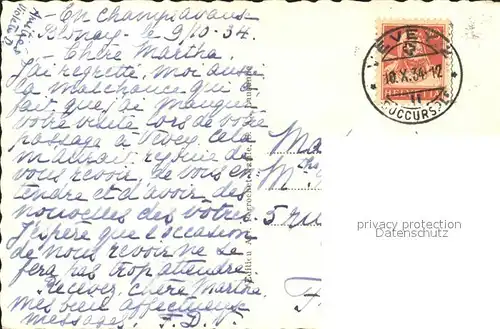 En champ avaux
Blonay - le 9/10 - 34.
Chère Martha.
J'ai regretté, moi aussi
la malchance qui a
fait que j'ai manqué
votre visite lors de votre
passage à Vevey. Cela
m'aurait réjouie de
vous revoir, de vous en-
tendre et d'avoir des
nouvelles des vôtres.
J'espère que l'occasion
de nous revoir ne se
fera pas trop attendre.
Recevez, chère Martha,
mes bien affectueux
messages. F. D. V.
Amitiés
VEVEY
10.X.34-12
11
SUCCURSALE
HELVETIA
Edition
M
5 ru
privacy protection
watermark